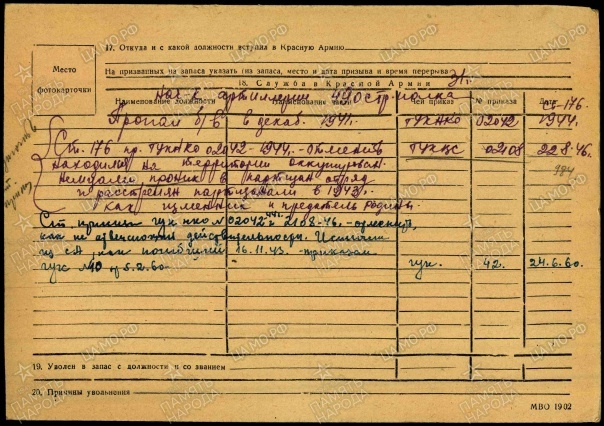 17. Откуда и с какой должности вступил в Красную Армию
Место фотокарточки
На призванных из запаса указать (из запаса, место и дата призыва и время перерыва)
18. Служба в Красной Армии
31 г.
Наименование должности Наименование части Чей приказ № приказа Дата
Нач-к артиллерии 740 стр. полка Ст-176.
Пропал б/в в декаб. 1941г. ГУКНКО 02042 1944г.
Ст. 176 пр. ГУКНКО 02042-1944г. - отменить ГУКВС 02108 22.8.46г.
Находился на территории оккупирован.
немцами проник в партизан. отряд
и расстрелян партизанами в 1943г.
как изменник и предатель родины.
994
Ст. приказы ГУК НКО №02042-44г. и 2108-46. - отменить,
как не отвечающий действительности. Исключен
из СА, как погибший 16.11.43. - приказом
ГУК №40 от 5.2.60. ГУК. 42. 24.6.60.
19. Уволен в запас с должности и со званием
20. Причины увольнения
МВО 1902
ЦАМО.РФ
ПАМЯТЬ НАРОДА